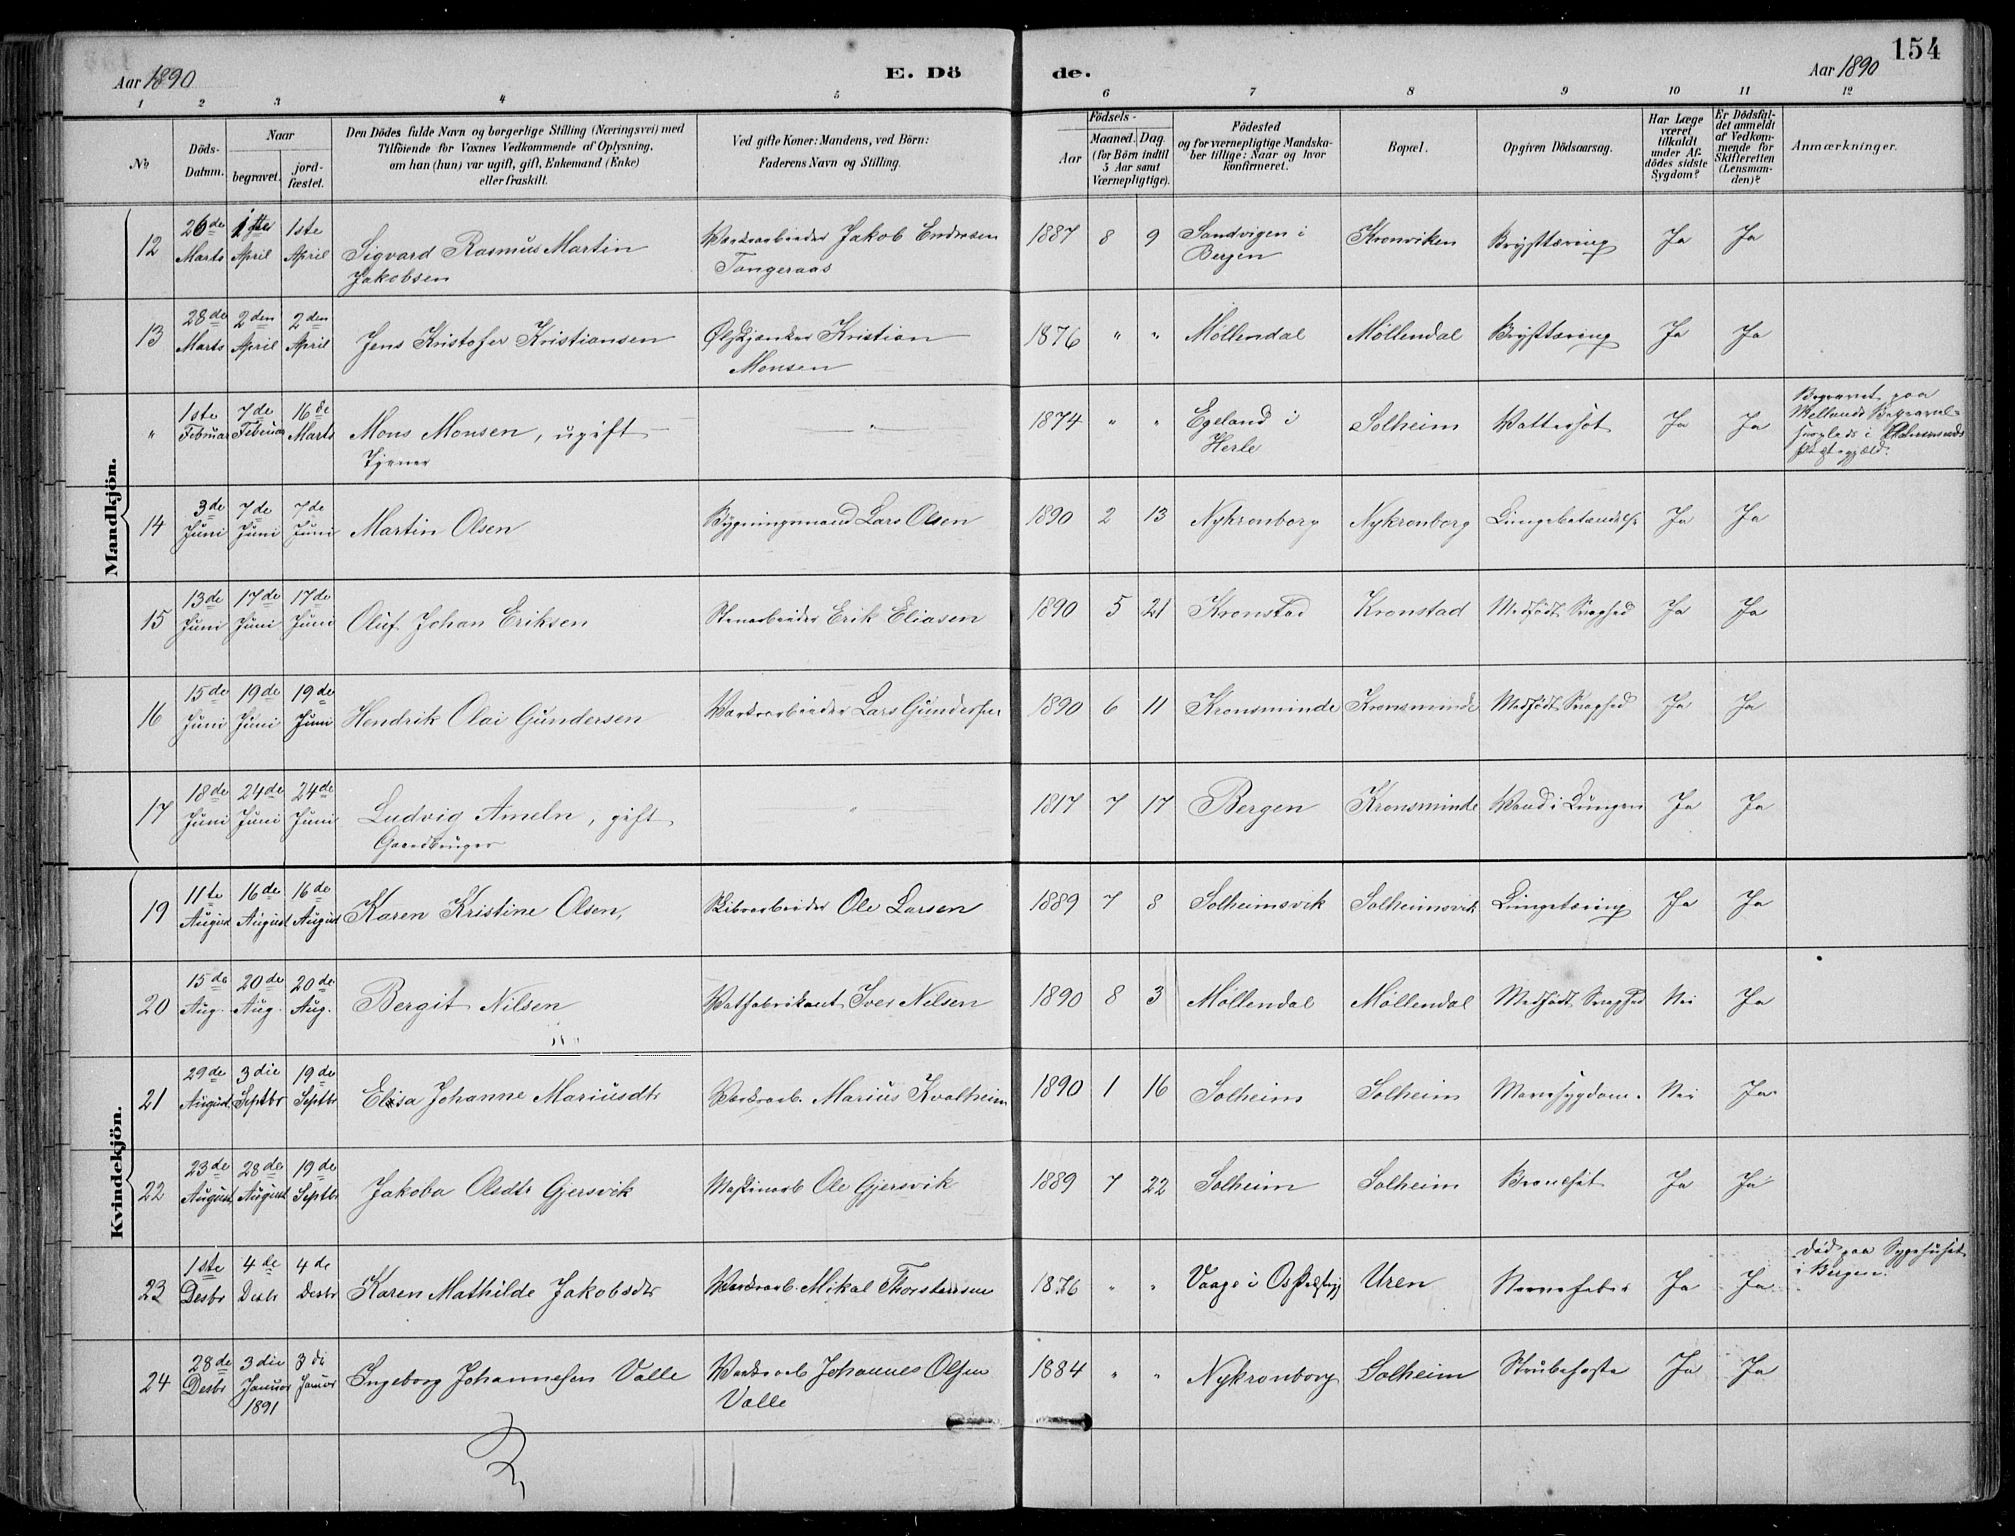 154
Aar 1890 E. Dö de. Aar 1890
1 2 3 4 5 6 7 8 9 10 11 12
No
Döds-Datum.
Naar
begravet.
jord-fæstet.
Den Dödes fulde Navn og borgerlige Stilling (Næringsvei) med
Tilföiende for Voxnes Vedkommende af Oplysning,
om han (hun) var ugift, gift, Enkemand (Enke)
eller fraskilt.
Ved gifte Koner: Mandens, ved Börn:
Faderens Navn og Stilling.
Födsels-
Aar
Maaned. Dag.
(for Börn indtil
5 Aar samt
Værnepligtige).
Födested
og for værnepligtige Mandska-
ber tillige: Naar og hvor
konfirmeret.
Bopæl.
Opgiven Dödsaarsag.
Har Læge
været
tilkaldt
under Af-
dödes sidste
Sygdom?
Er Dödsfal-
det anmeldt
af Vedkom-
mende for
Skifteretten
(Lensman-
den)?
Anmærkninger.
Mandkjön.
12 26de Marts 1ste April 1ste April Sigvard Rasmus Martin Værksarbeider Jakob Endresen 1887 8 9 Sandvigen i Kronviken Brysttæring Ja Ja
Jakobsen Tangeraas Bergen
13 28de Marts 2den April 2den April Jens Kristofer Kristiansen Ølskjænker Kristian 1876 " " Møllendal Møllendal Brysttæring Ja Ja
Monsen
" 1ste Februar 7de Februar 16de Marts Mons Monsen, ugift " 1874 " " Egeland i Solheim Vattersot Ja Ja Begravet paa
Tjener Herlø
14 3de Juni 7de Juni 7de Juni Martin Olsen Bygningsmand Lars Olsen 1890 2 13 Nykronborg Nykronborg Lungebetændelse Ja Ja
15 13de Juni 17de Juni 17de Juni Oluf Johan Eriksen Stenarbeider Erik Eliasen 1890 5 21 Kronstad Kronstad Medfødt Svaghed Ja Ja
16 15de Juni 19de Juni 19de Juni Hendrik Olai Gundersen Værksarbeider Lars Gundersen 1890 6 11 Kronsminde Kronsminde Medfødt Svaghed Ja Ja
17 18de Juni 24de Juni 24de Juni Ludvig Ameln, gift " 1817 7 17 Bergen Kronsminde Vand i Lungen Ja Ja
Gaardbruger
Kvindekjön.
19 11te August 16de August 16de August Karen Kristine Olsen, Skibsarbeider Ole Larsen 1889 7 8 Solheimsvik Solheimsvik Lungetæring Ja Ja
20 15de Aug. 20de Aug. 20de Aug. Bergit Nilsen Vatfabrikant Iver Nilsen 1890 8 3 Møllendal Møllendal Medfødt Svaghed Nei Ja
21 29de August 3die Septbr 19de Septbr Elisa Johanne Mariusdtr Værksarb. Marius Kvalheim 1890 1 16 Solheim Solheim Mavesygdom. Nei Ja
22 23de August 28de August 19de Septbr Jakoba Olsdtr Gjersvik Maskinarb Ole Gjersvik 1889 7 22 Solheim Solheim Ja Ja
23 1ste Desbr 4de Desbr 4de Desbr Karen Mathilde Jakobsdtr Værksarb. Mikal Thorstensen 1876 " " Vaage i Os Uren Nervefeber Ja Ja død paa Sygehuset
i Bergen.
24 28de Desbr 3die Januar 1891 3die Januar Ingeborg Johannesen Valle Værksarb Johannes Olsen 1884 " " Nykronborg Solheim Strubehoste Ja Ja
Valle